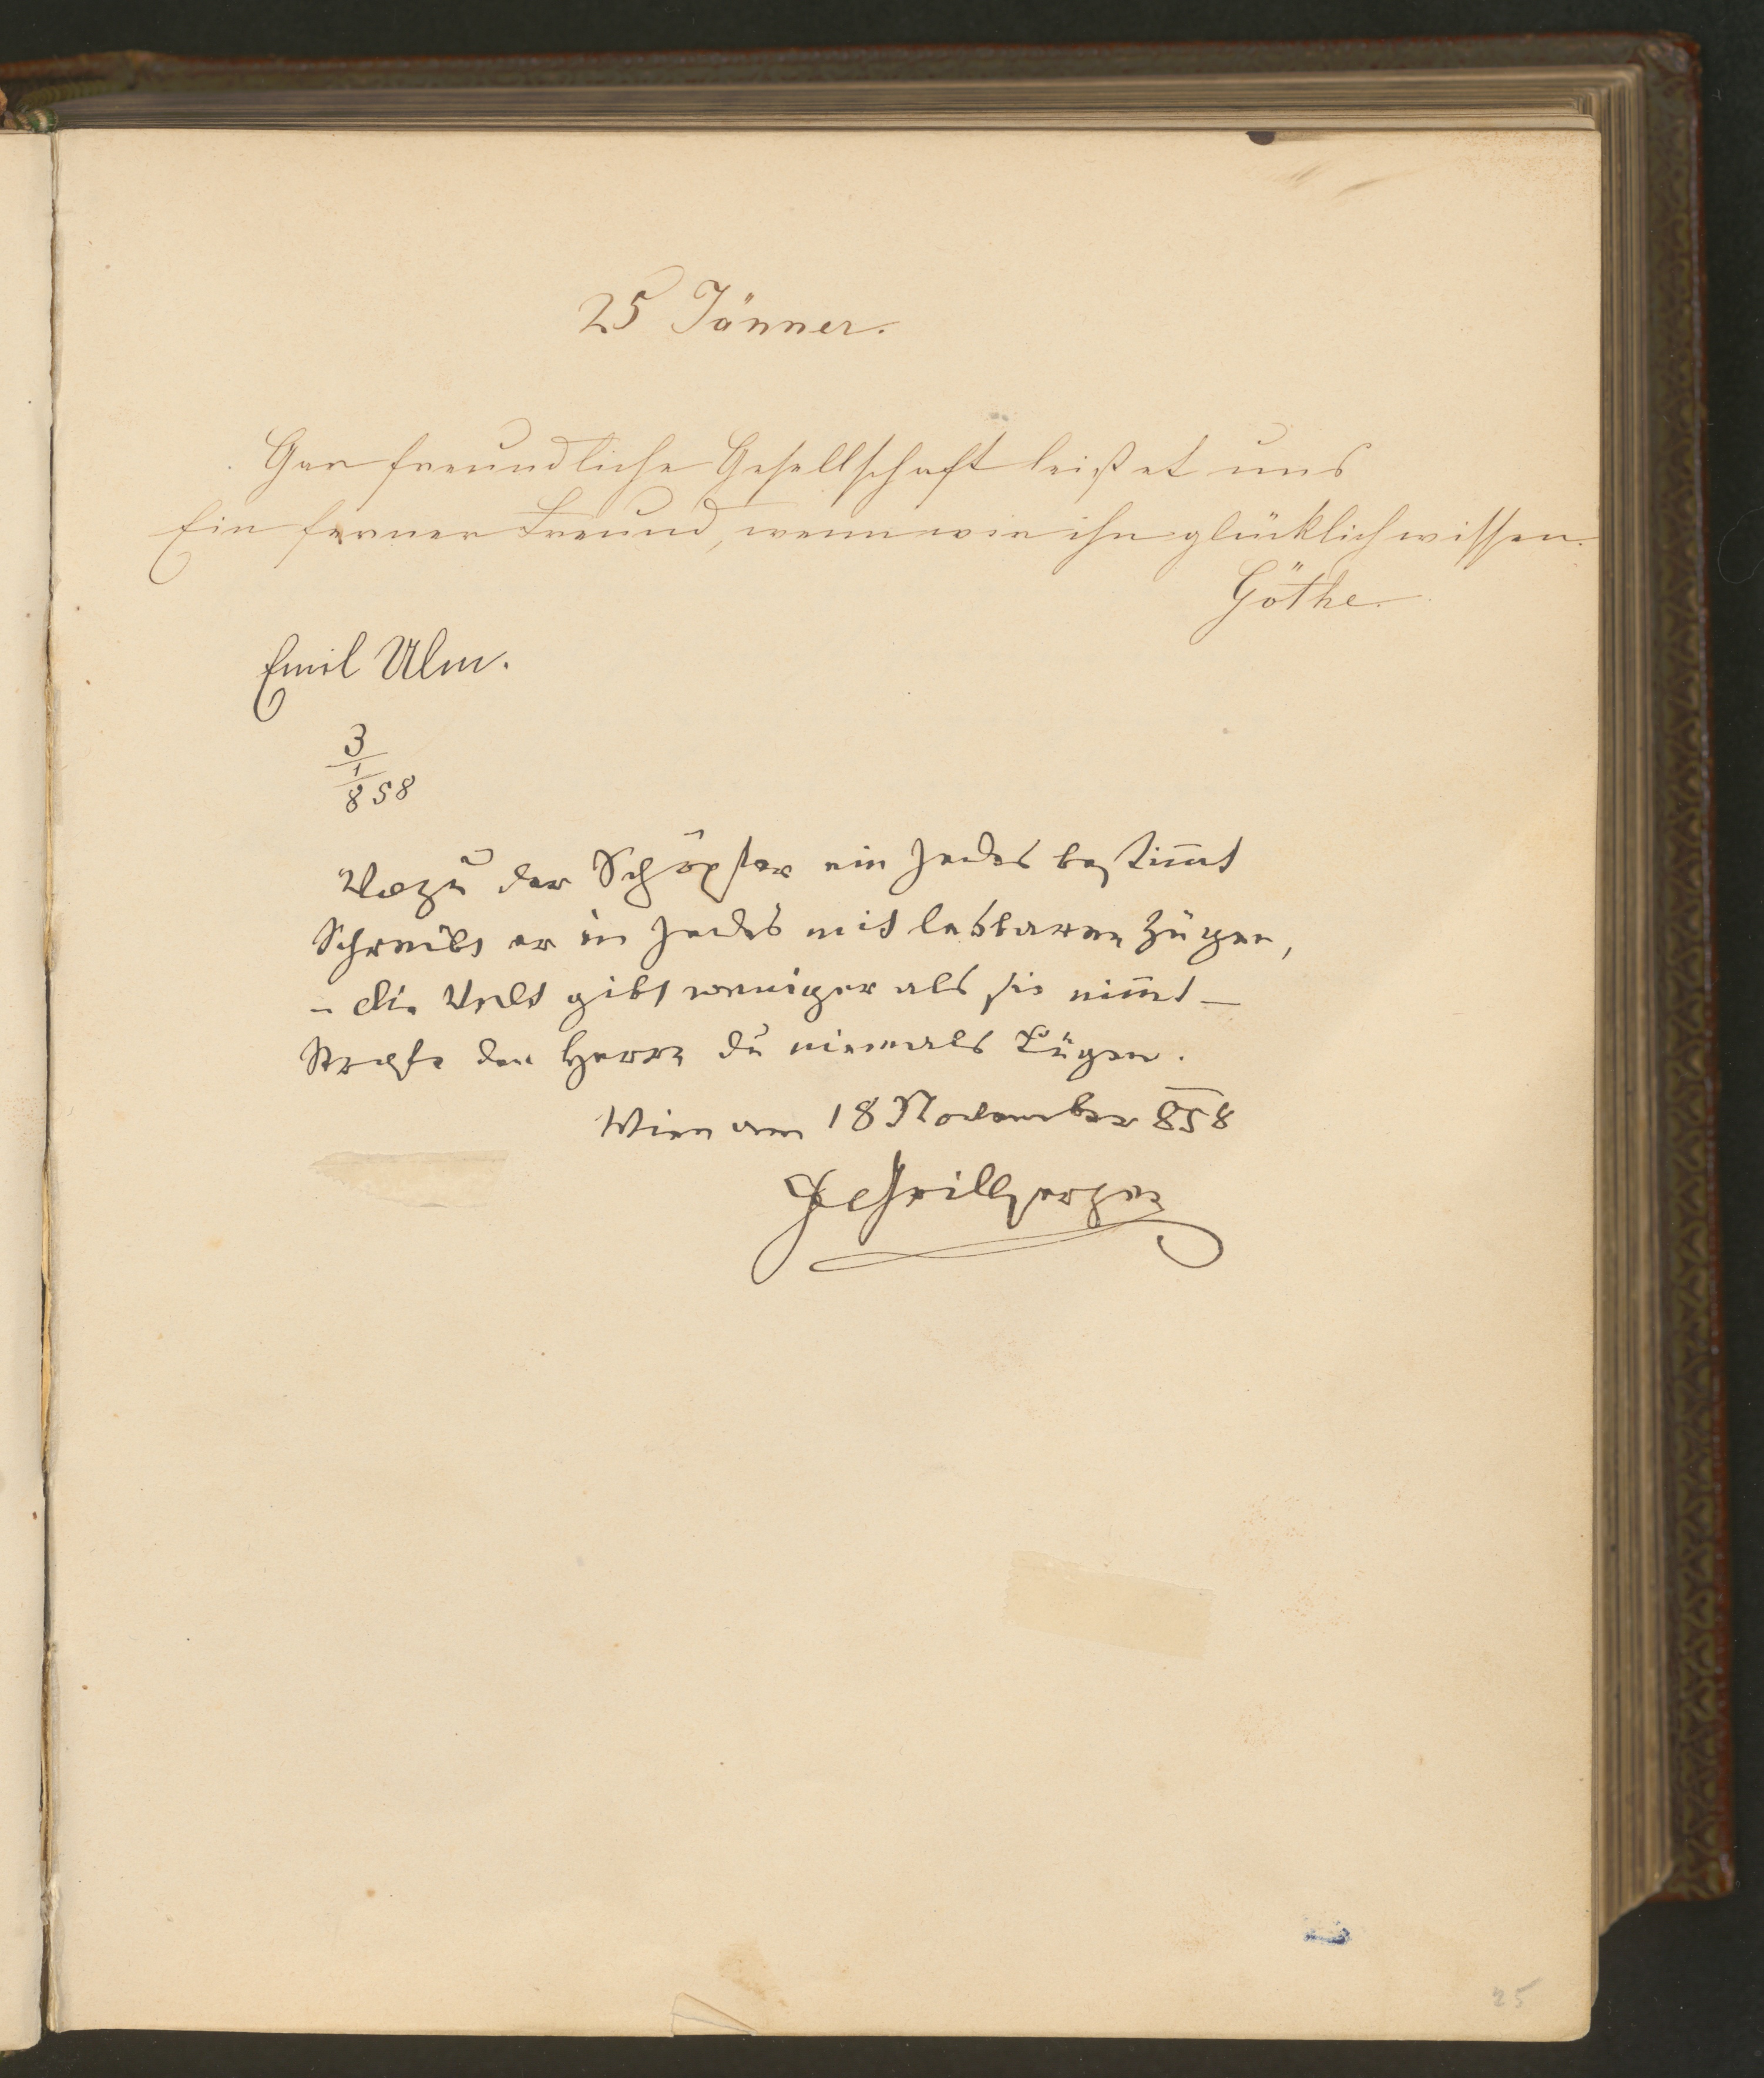 25 Jänner.
Gar freundliche Gesellschaft leistet uns
Ein ferner Freund, wenn wir ihn glücklich wissen.
Göthe.
Emil Ulm.
3
1
858
Wozu der Schöpfer ein Jedes bestim̄t
Schreibt er in Jedes mit lesbaren Zügen,
– die Welt gibt weniger als sie nim̄t –
Strafe den Herrn du niemals Lügen.
Wien am 18 November 858
Grillparzer
25